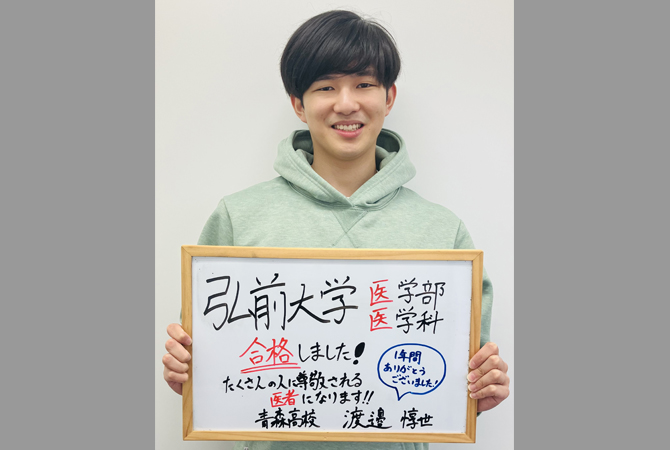 弘前大学 医学部
医学科
合格しました!
たくさんの人に尊敬される
医者になります!!
1年間
ありがとう
ございました!
青森高校 渡邉 惇世